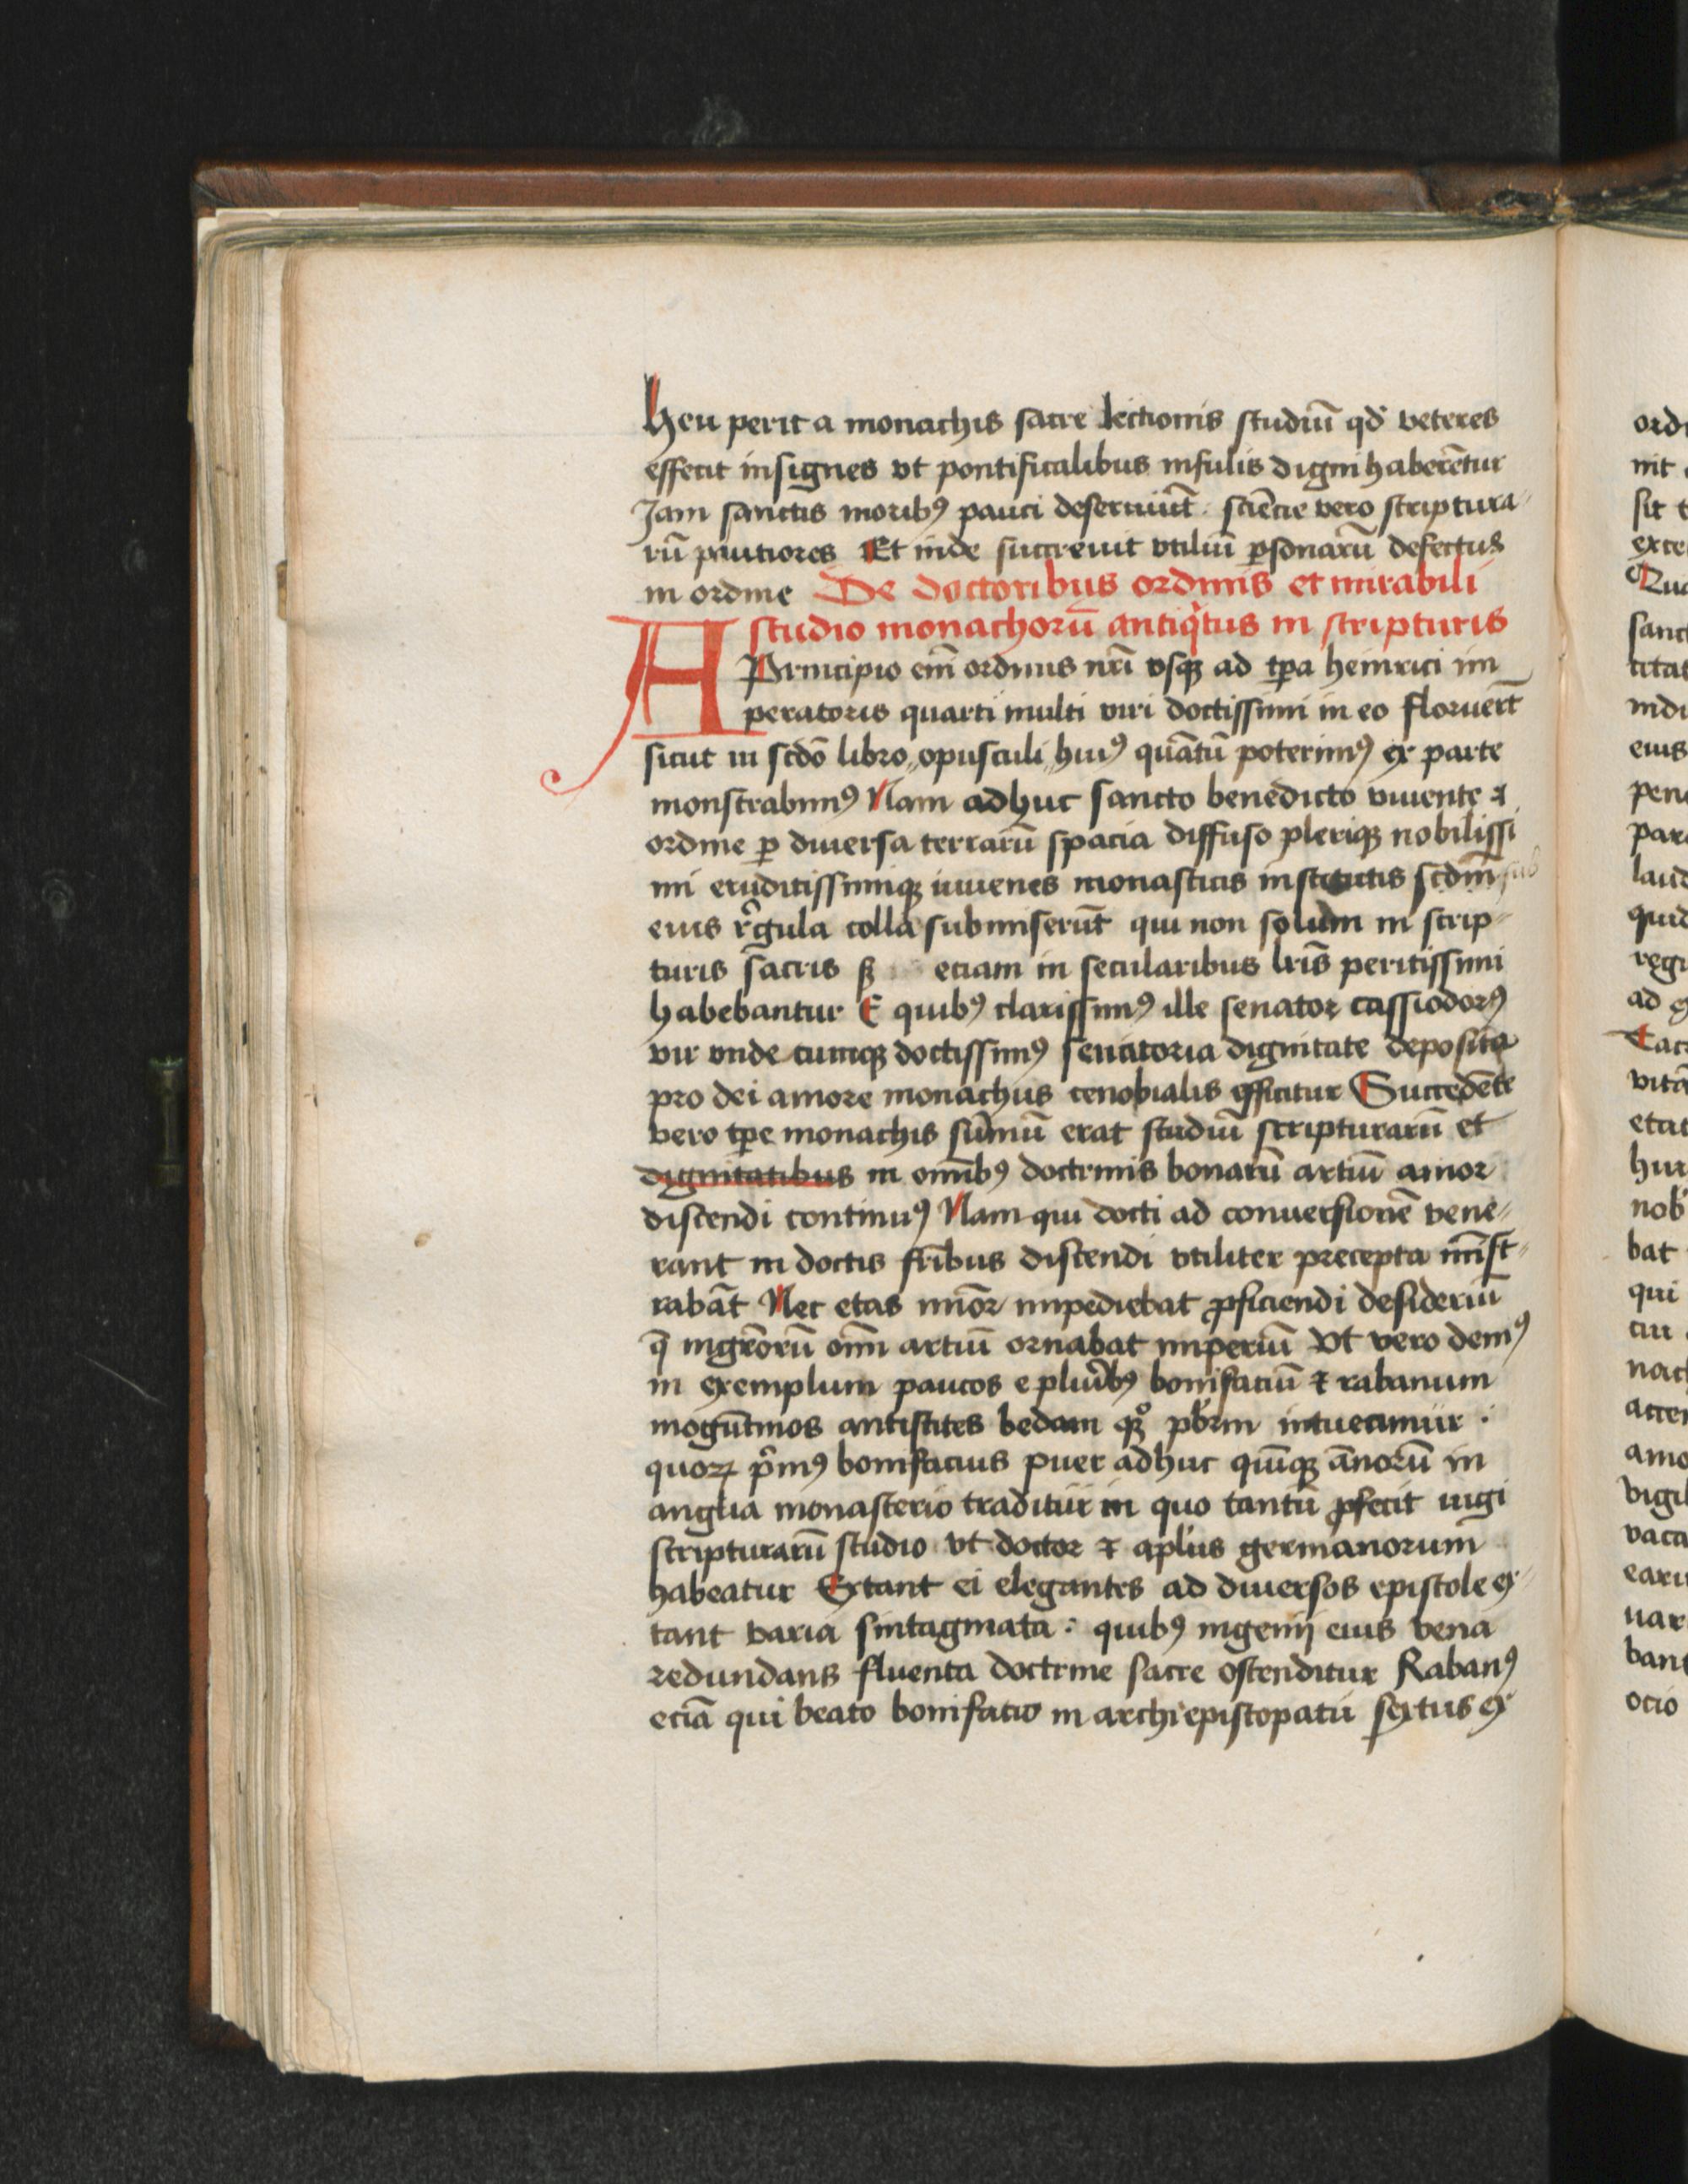 heu perit a monachis sacre lectionis studiū qď veteres
effecit insignes vt pontificalibus infulis digni haberētur
Jam sanctis moribꝰ pauci deseruiūt. sciēcie vero scriptura-
rū pautiores Et inde succreuit vtiliū ꝑsonarū defectus
in ordine De doctoribus ordinis et mirabili
studio monachorū antiq̇tus in scripturis
A Principio em̄ ordinis nr̄i vsqꝫ ad tꝑa heinrici im
peratoris quarti multi viri doctissimi in eo floruer̄t
sicut in scdō libro opusculi huiꝰ quātū poterimꝰ ex parte
monstrabimꝰ Nam adhuc sancto benedicto viuente ⁊
ordine ꝑ diuersa terrarū spacia diffuso pleriqꝫ nobilissi
mi eruditissimiqꝫ iuuenes monasticis institutis scdm̄ sub
eius regula colla submiserūt qui non solum in scrip-
turis sacris sꝫ eciam in secularibus lr̄is peritissimi
habebantur E quibꝰ clarissimꝰ ille senator cassiodorꝰ
vir vnde cumqꝫ doctissimꝰ senatoria dignitate deposita
pro dei amore monachus cenobialis efficitur Succedēte
vero tꝑe monachis sūmū erat studiū scripturarū et
dignitatibus in om̄ibꝰ doctrinis bonarū artiū amor
discendi continuꝰ Nam qui docti ad conuersionē vene-
rant in doctis fr̄ibus discendi vtiliter precepta mīst-
rabāt Nec etas miōr impediebat ꝓficiendi desideriū
q̄ ingēorū om̄ artiū ornabat imperiū Vt vero demꝰ
in exemplum paucos e pluribꝰ bonifaciū ⁊ rabanum
mogūtinos antistites bedam qꝫ pbrm intueamur :
quoꝝ pͥmꝰ bonifacius puer adhuc quīqꝫ ānorū in
anglia monasterio traditur in quo tantū ꝓfecit iugi
scripturarū studio vt doctor ⁊ apl'us germanorum
habeatur Extant ei elegantes ad diuersos epistole ex-
tant varia sintagmata : quibꝰ ingenij eius vena
redundans fluenta doctrine sacre ostenditur Rabanꝰ
eciā qui beato bonifatio in archiepiscopatū sextus ex